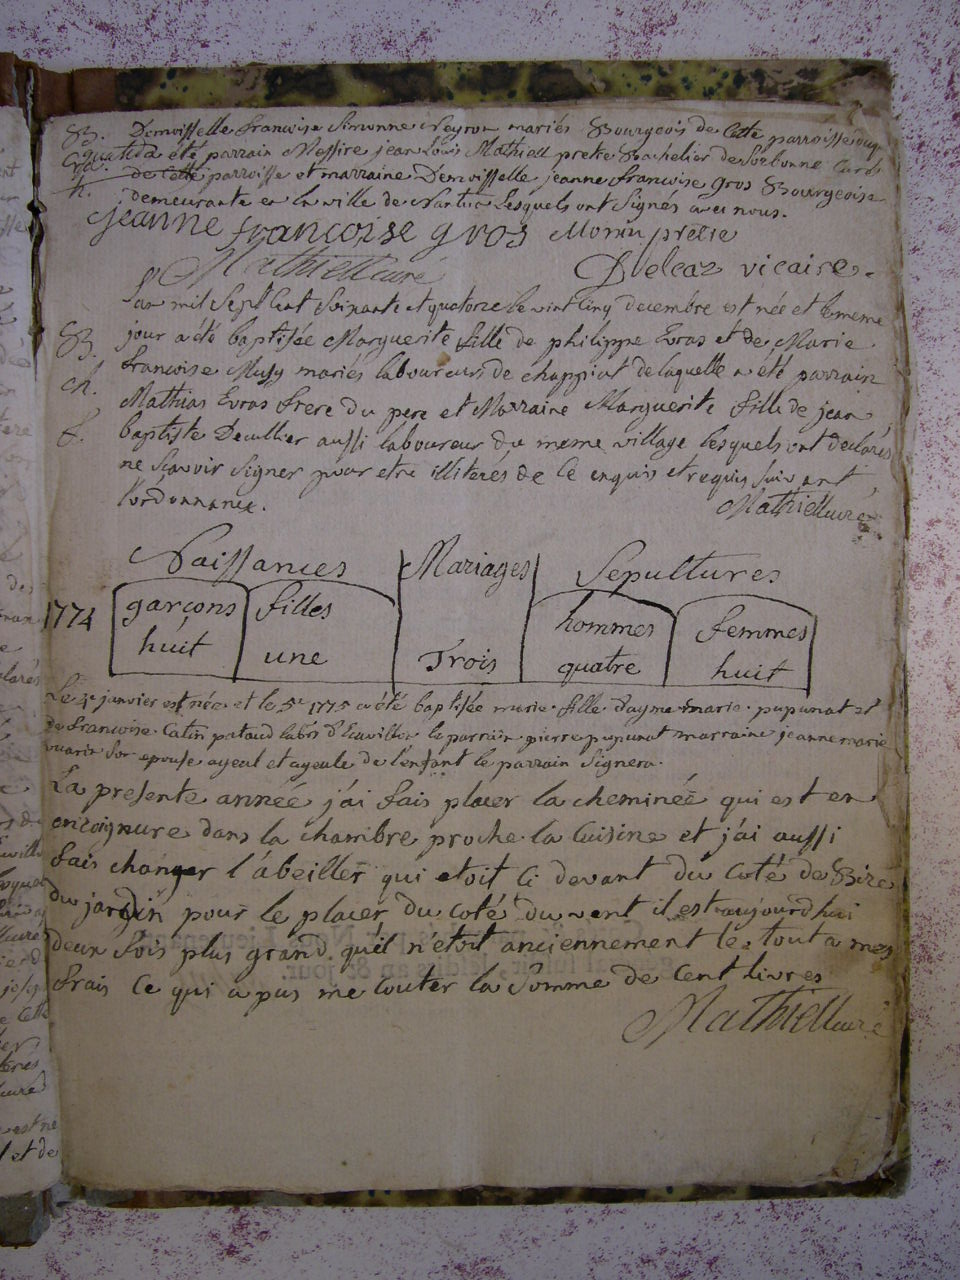 B. Demoisselle francoise Simonne Neyron mariés Bourgeois de Cette parroisse du
quel a été parrain Messire jean Louis Mathieu pretre Bachelier de Sorbonne Curé
h. de Cette parroisse et marraine Demoisselle jeanne francoise gros Bourgeoise
demeurante en la ville de Nantua Lesquels ont Signés avec nous.
jeanne francoise gros Monin pretre
Mathieu curé Delcaz vicaire.
l'an mil Sept Cent Soixante et quatorze le vint Cinq decembre est née et le meme
B. jour a été baptisée Marguerite fille de philippe Evras et de Marie
ch. francoise Mussy mariés laboureurs de chappiat de laquelle a été parrain
Mathias Evras frere du pere et Marraine Marguerite fille de jean
f. baptiste Decullier aussi laboureur du meme village lesquels ont declarés
ne Scavoir Signer pour etre illiterés de Ce enquis et requis Suivant
l'ordonnance. Mathieu curé
Naissances Mariages Sepultures
1774 garçons filles hommes femmes
huit une Trois quatre huit
Le 4e janvier est née et le 5e 1775 a été baptisée marie fille d'ayme marie pupunat et
de francoise Catin pataud labrs le parrain pierre pupunat marraine jeanne marie
Son epouse ayeul et ayeule de l'enfant le parrain Signera.
La presente année j'ai fais placer la cheminée qui est en
encoignure dans la chambre proche la Cuisine et j'ai aussi
fais changer l'abeiller qui etoit Ci devant du Coté de Bize
du jardin pour le placer du Coté du vent il est aujourdhui
deux fois plus grand qu'il n'etoit anciennement le tout a mes
frais Ce qui a pas me Couter la Somme de Cent livres
Mathieu curé